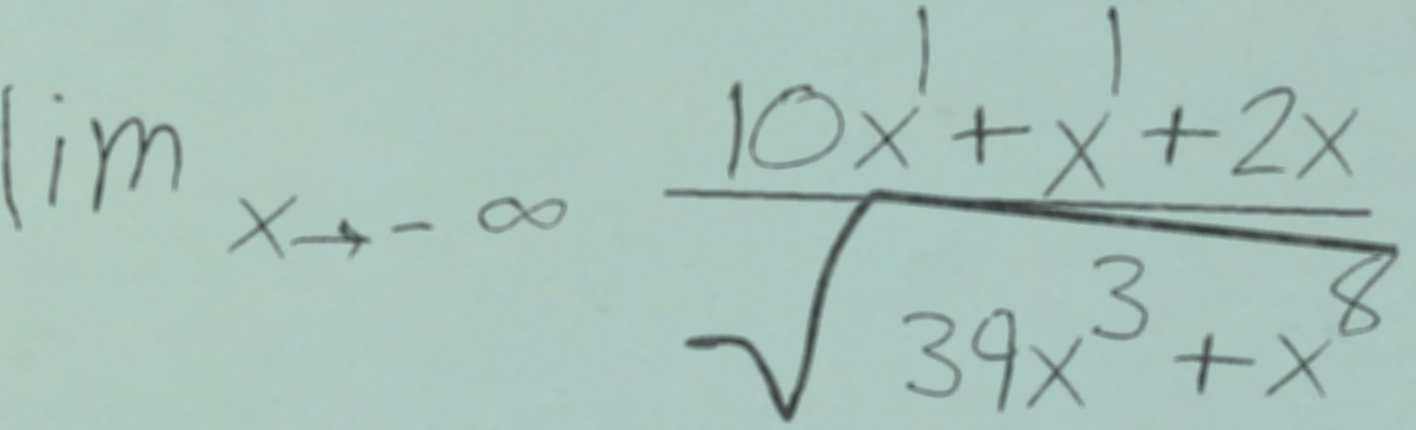 lim x→-∞ (10x^1 + x^1 + 2x)/√(39x^3 + x^8)